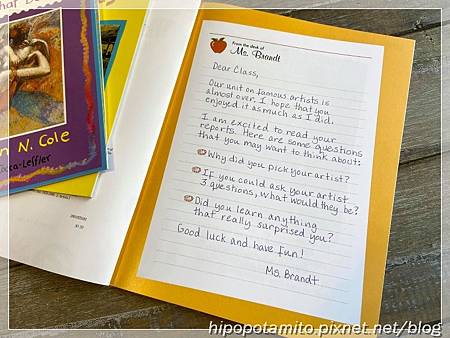 n N. Cole
From the desk of
Ms. Brandt
Dear Class,
Our unit on famous artists is
almost over. I hope that you
enjoyed it as much as I did.
I am excited to read your
reports. Here are some questions
that you may want to think about:
Why did you pick your artist?
If you could ask your artist
3 questions, what would they be?
Did you learn anything
that really surprised you?
Good luck and have fun!
Ms. Brandt
hipopotamito.pixnet.net/blog